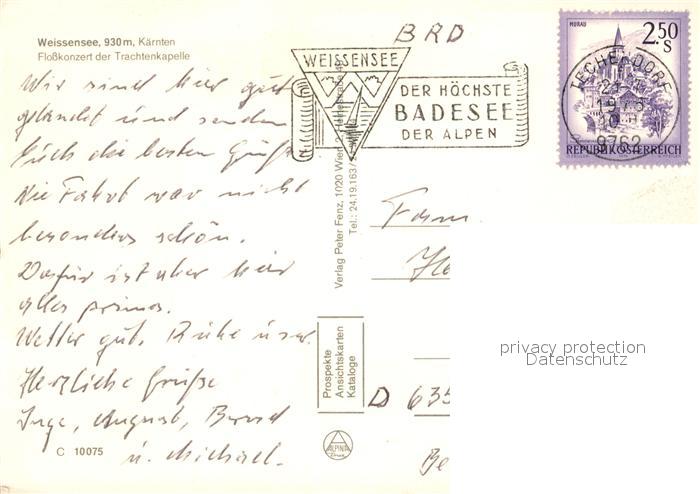 Weissensee, 930 m, Kärnten
Floßkonzert der Trachtenkapelle
BRD
WEISSENSEE
DER HÖCHSTE
BADESEE
DER ALPEN
MURAU
2.50
S
TECHENDORF
9762
REPUBLIK ÖSTERREICH
Wir sind hier gut
gelandet und senden
Euch die besten Grüße
Die Fahrt war nicht
besonders schön.
Dafür ist aber hier
alles prima.
Wetter gut, Ruhe usw.
Herzliche Grüße
Inge, August, Bernd
u. Michael.
C 10075
Verlag Peter Fenz, 1020 Wien
Tel.: 24.19.163/
Prospekte
Ansichtskarten
Kataloge
ALPINA
Druck
Fam.
D 635
privacy protection
Datenschutz